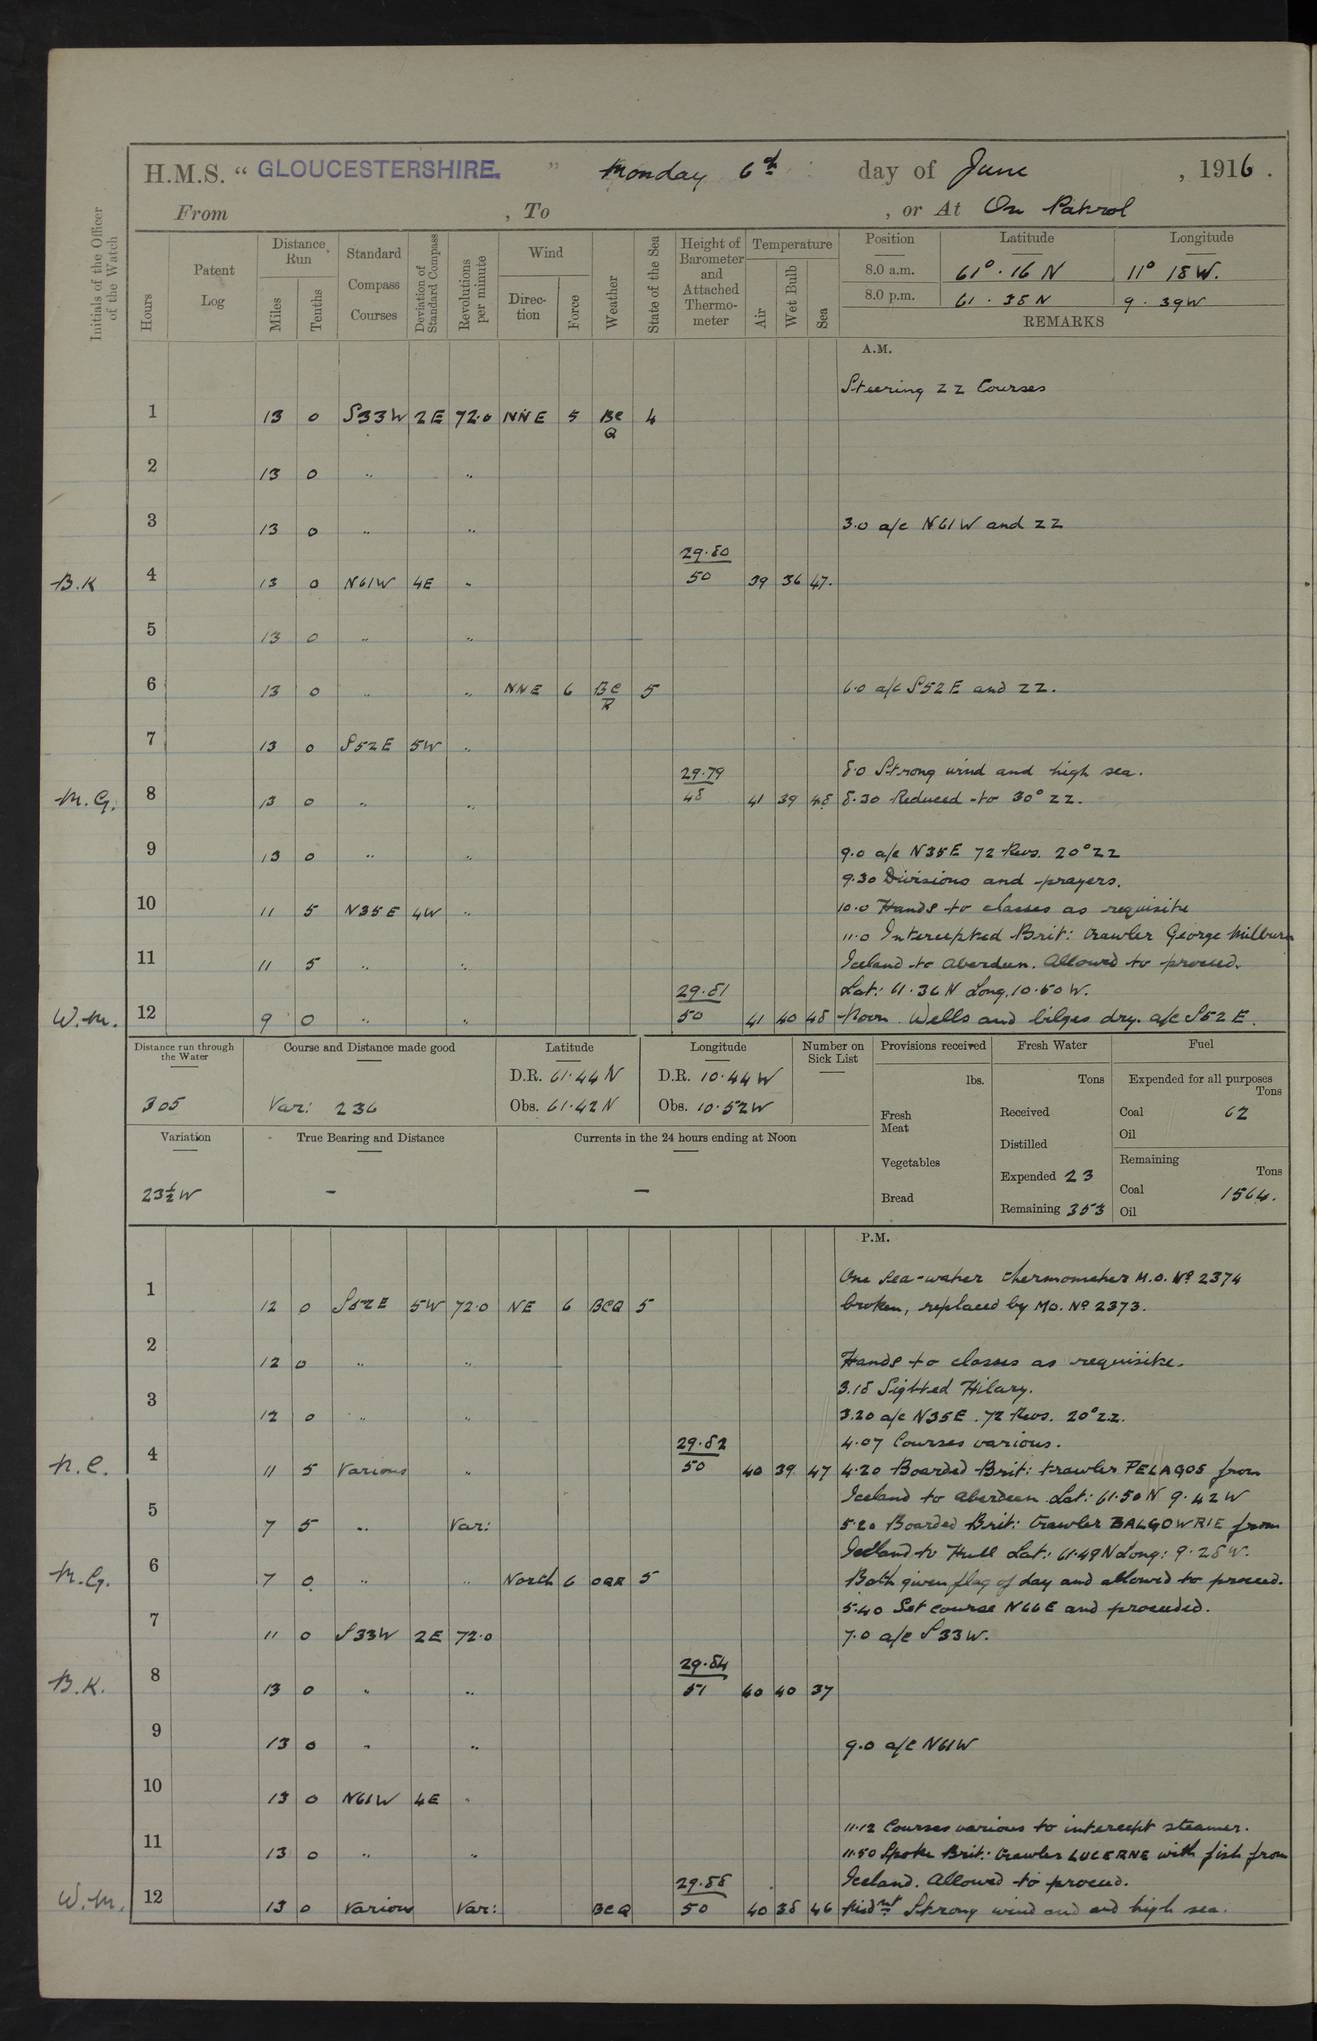 H.M.S. “ GLOUCESTERSHIRE. ” Monday 6th day of June , 1916 .
From , To , or At On Patrol
Initials of the Officer of the Watch
Hours
Patent Log
Distance Run
Miles
Tenths
Standard Compass Courses
Deviation of Standard Compass
Revolutions per minute
Wind
Direction
Force
Weather
State of the Sea
Height of Barometer and Attached Thermometer
Temperature
Air
Wet Bulb
Sea
Position Latitude Longitude
8.0 a.m. 61° . 16 N 11° 18 W.
8.0 p.m. 61 . 35 N 9 . 39 W
REMARKS
A.M.
Steering ZZ Courses
1 13 0 S33W 2E 72.0 NNE 5 BC Q 4
2 13 0 " "
3 13 0 " " 3.0 a/c N61W and ZZ
29.80
B.K 4 13 0 N61W 4E " 50 39 36 47.
5 13 0 " "
6 13 0 " " NNE 6 BC R 5 6.0 a/c S52E and ZZ.
7 13 0 S52E 5W "
29.79 8.0 Strong wind and high sea.
M.G. 8 13 0 " " 48 41 39 48 8.30 Reduced to 30° ZZ.
9 13 0 " " 9.0 a/c N35E 72 Revs. 20° ZZ
9.30 Divisions and prayers.
10 11 5 N35E 4W " 10.0 Hands to classes as requisite
11.0 Intercepted Brit: trawler George Milburn
11 11 5 " " Iceland to Aberdeen. Allowed to proceed.
29.81 Lat: 61.36 N Long. 10.50 W.
W.M. 12 9 0 " " 50 41 40 48 Noon. Wells and bilges dry. a/c S52E.
Distance run through the Water 305
Course and Distance made good Var: 236
Latitude
D.R. 61.44 N
Obs. 61.42 N
Longitude
D.R. 10.44 W
Obs. 10.52 W
Number on Sick List
Provisions received
lbs.
Fresh Meat
Vegetables
Bread
Fresh Water
Tons
Received
Distilled
Expended 23
Remaining 353
Fuel
Expended for all purposes
Tons
Coal 62
Oil
Remaining
Tons
Coal 1564.
Oil
Variation 23½ W
True Bearing and Distance –
Currents in the 24 hours ending at Noon –
P.M.
One sea-water thermometer M.O. No 2374
1 12 0 S52E 5W 72.0 NE 6 BCQ 5 broken, replaced by MO. No 2373.
2 12 0 " " Hands to classes as requisite.
3.18 Sighted Hilary.
3 12 0 " " 3.20 a/c N35E. 72 Revs. 20° ZZ.
29.82 4.07 Courses various.
N.C. 4 11 5 Various " 50 40 39 47 4.20 Boarded Brit: trawler PELAGOS from
Iceland to Aberdeen. Lat: 61.50 N 9.42 W
5 7 5 " Var: 5.20 Boarded Brit: trawler BALGOWRIE from
Iceland to Hull Lat: 61.49 N Long: 9.28 W.
M.G. 6 7 0 " " North 6 OQR 5 Both given flag of day and allowed to proceed.
5.40 Set course N66E and proceeded.
7 11 0 S33W 2E 72.0 7.0 a/c S33W.
29.84
B.K. 8 13 0 " " 51 40 40 37
9 13 0 " " 9.0 a/c N61W
10 13 0 N61W 4E "
11.12 Courses various to intercept steamer.
11 13 0 " " 11.50 Spoke Brit: trawler LUCERNE with fish from
29.88 Iceland. Allowed to proceed.
W.M. 12 13 0 Various Var: BCQ 50 40 38 46 Midnt Strong wind and and high sea.